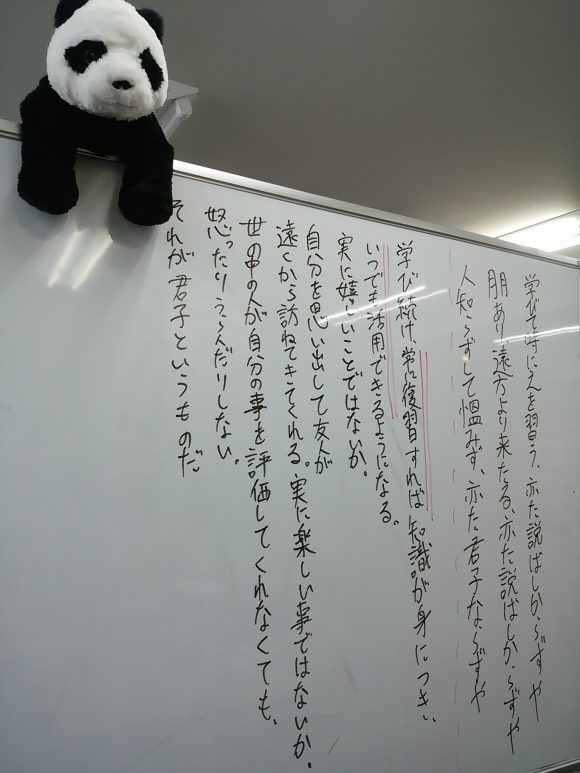 学びて時にこれを習う、亦た説ばしからずや
朋あり遠方より来たる、亦た説ばしからずや
人知らずして慍みず、亦た君子ならずや
学び続け、常に復習すれば知識が身につき、
いつでも活用できるようになる。
実に嬉しいことではないか。
自分を思い出して友人が
遠くから訪ねてきてくれる。実に楽しい事ではないか。
世の中の人が自分の事を評価してくれなくても、
怒ったりうらんだりしない。
それが君子というものだ